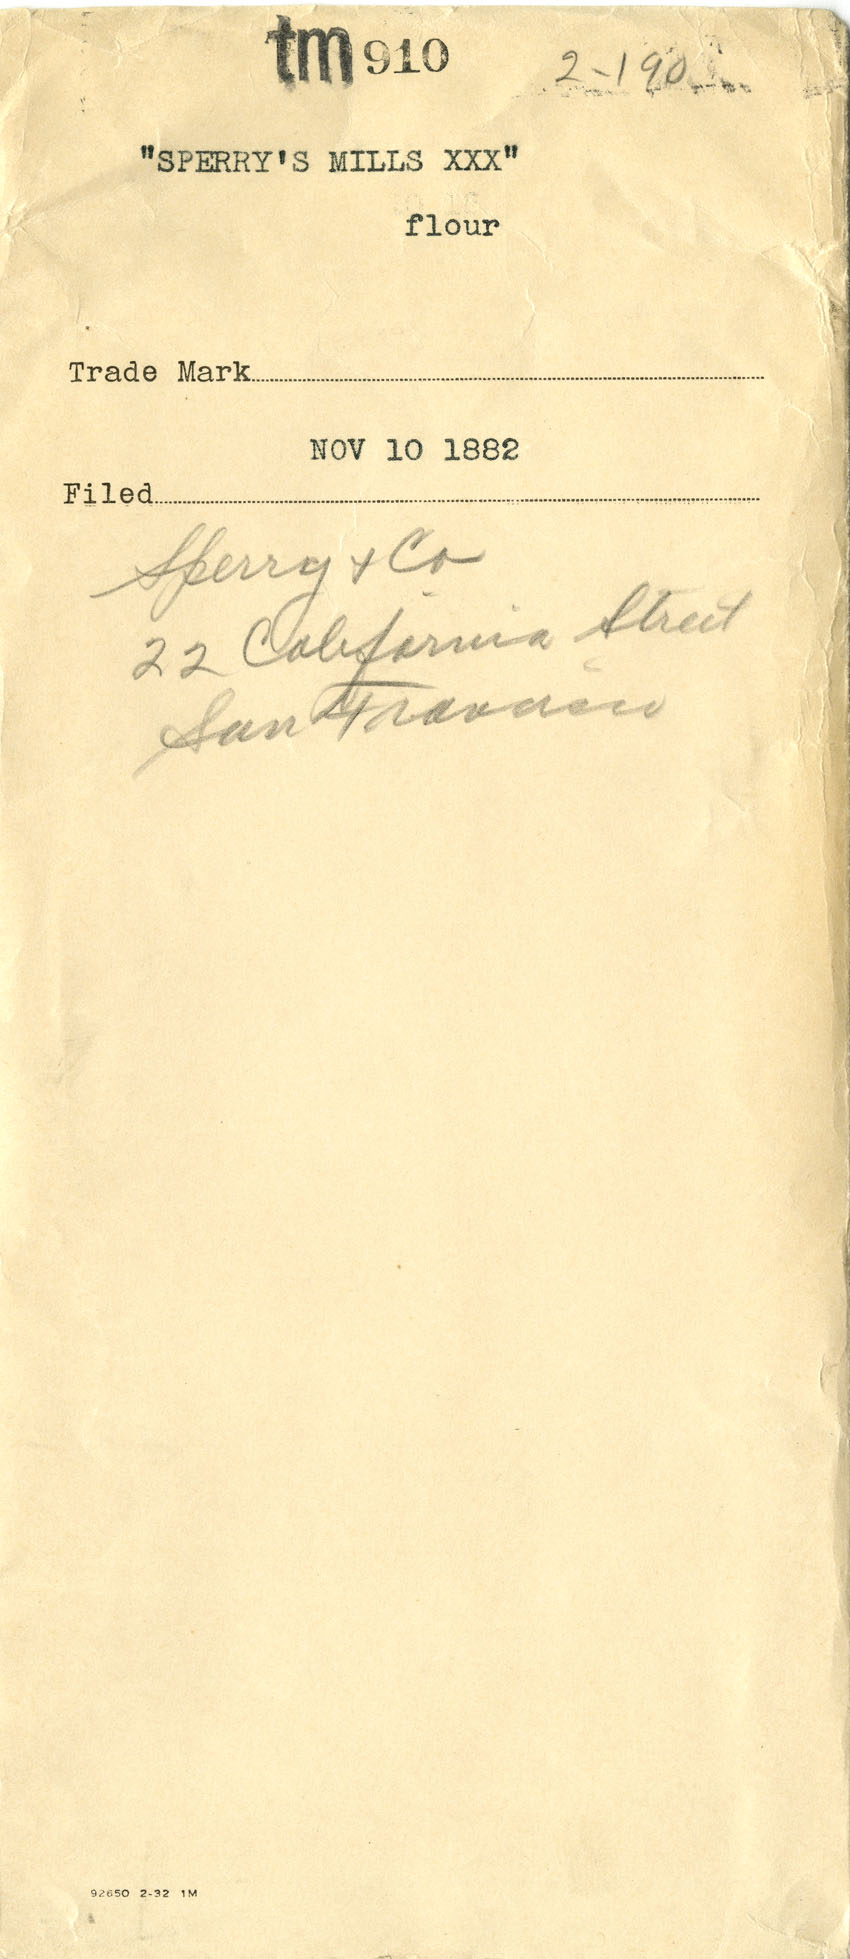 tm 910
2-190
"SPERRY'S MILLS XXX"
flour
Trade Mark
NOV 10 1882
Filed
Sperry & Co
22 California Street
San Francisco
92650 2-32 1M